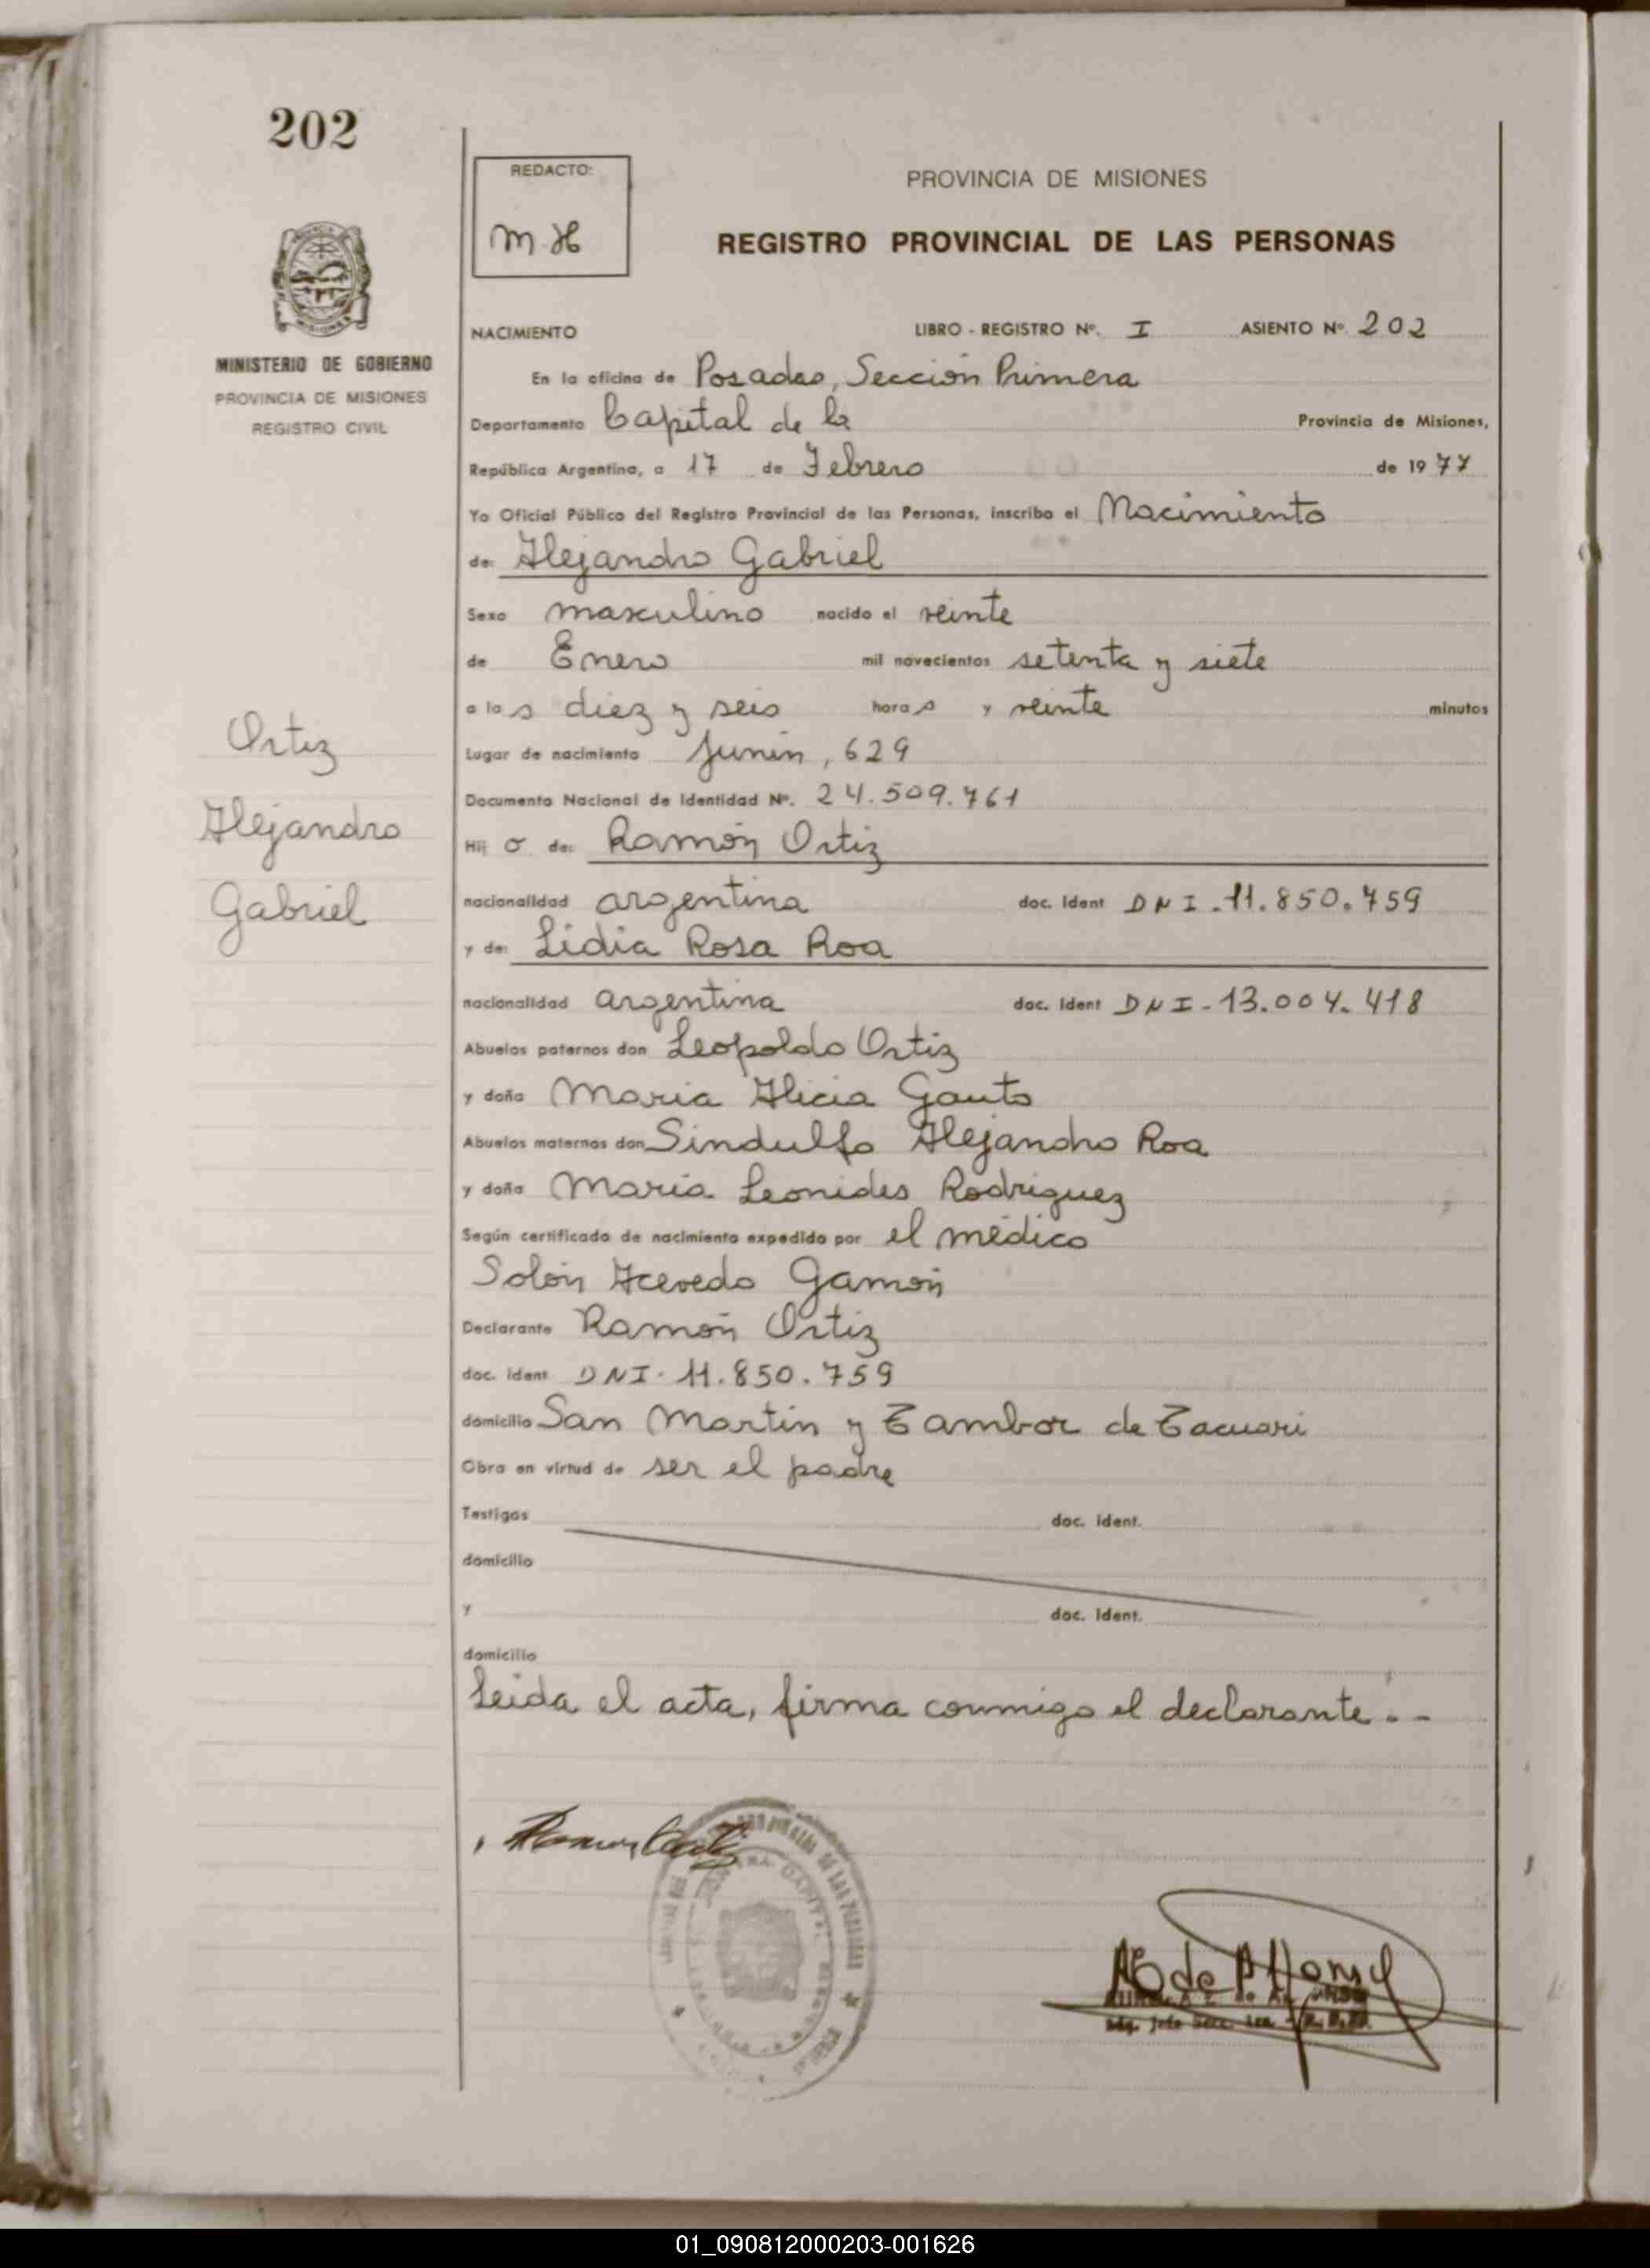 202
MINISTERIO DE GOBIERNO
PROVINCIA DE MISIONES
REGISTRO CIVIL
Ortiz
Alejandro
Gabriel
REDACTO:
M.H
PROVINCIA DE MISIONES
REGISTRO PROVINCIAL DE LAS PERSONAS
NACIMIENTO LIBRO - REGISTRO Nº. I ASIENTO Nº. 202
En la oficina de Posadas, Sección Primera
Departamento Capital de la Provincia de Misiones,
República Argentina, a 17 de Febrero de 1977
Yo Oficial Público del Registro Provincial de las Personas, inscribo el Nacimiento
de: Alejandro Gabriel
Sexo masculino nacido el veinte
de Enero mil novecientos setenta y siete
a las diez y seis horas y veinte minutos
Lugar de nacimiento Junín, 629
Documento Nacional de Identidad Nº. 24.509.761
Hijo de: Ramón Ortiz
nacionalidad argentina doc. Ident DNI-11.850.759
y de: Lidia Rosa Roa
nacionalidad argentina doc. Ident DNI-13.004.418
Abuelos paternos don Leopoldo Ortiz
y doña Maria Alicia Gauto
Abuelos maternos don Sindulfo Alejandro Roa
y doña María Leonides Rodriguez
Según certificado de nacimiento expedido por el médico
Solón Acevedo Gamón
Declarante Ramón Ortiz
doc. Ident DNI-11.850.759
domicilio San Martin y Tambor de Tacuari
Obra en virtud de ser el padre
Testigos doc. ident.
domicilio
y doc. ident.
domicilio
Leida el acta, firma conmigo el declarante.--
01_090812000203-001626